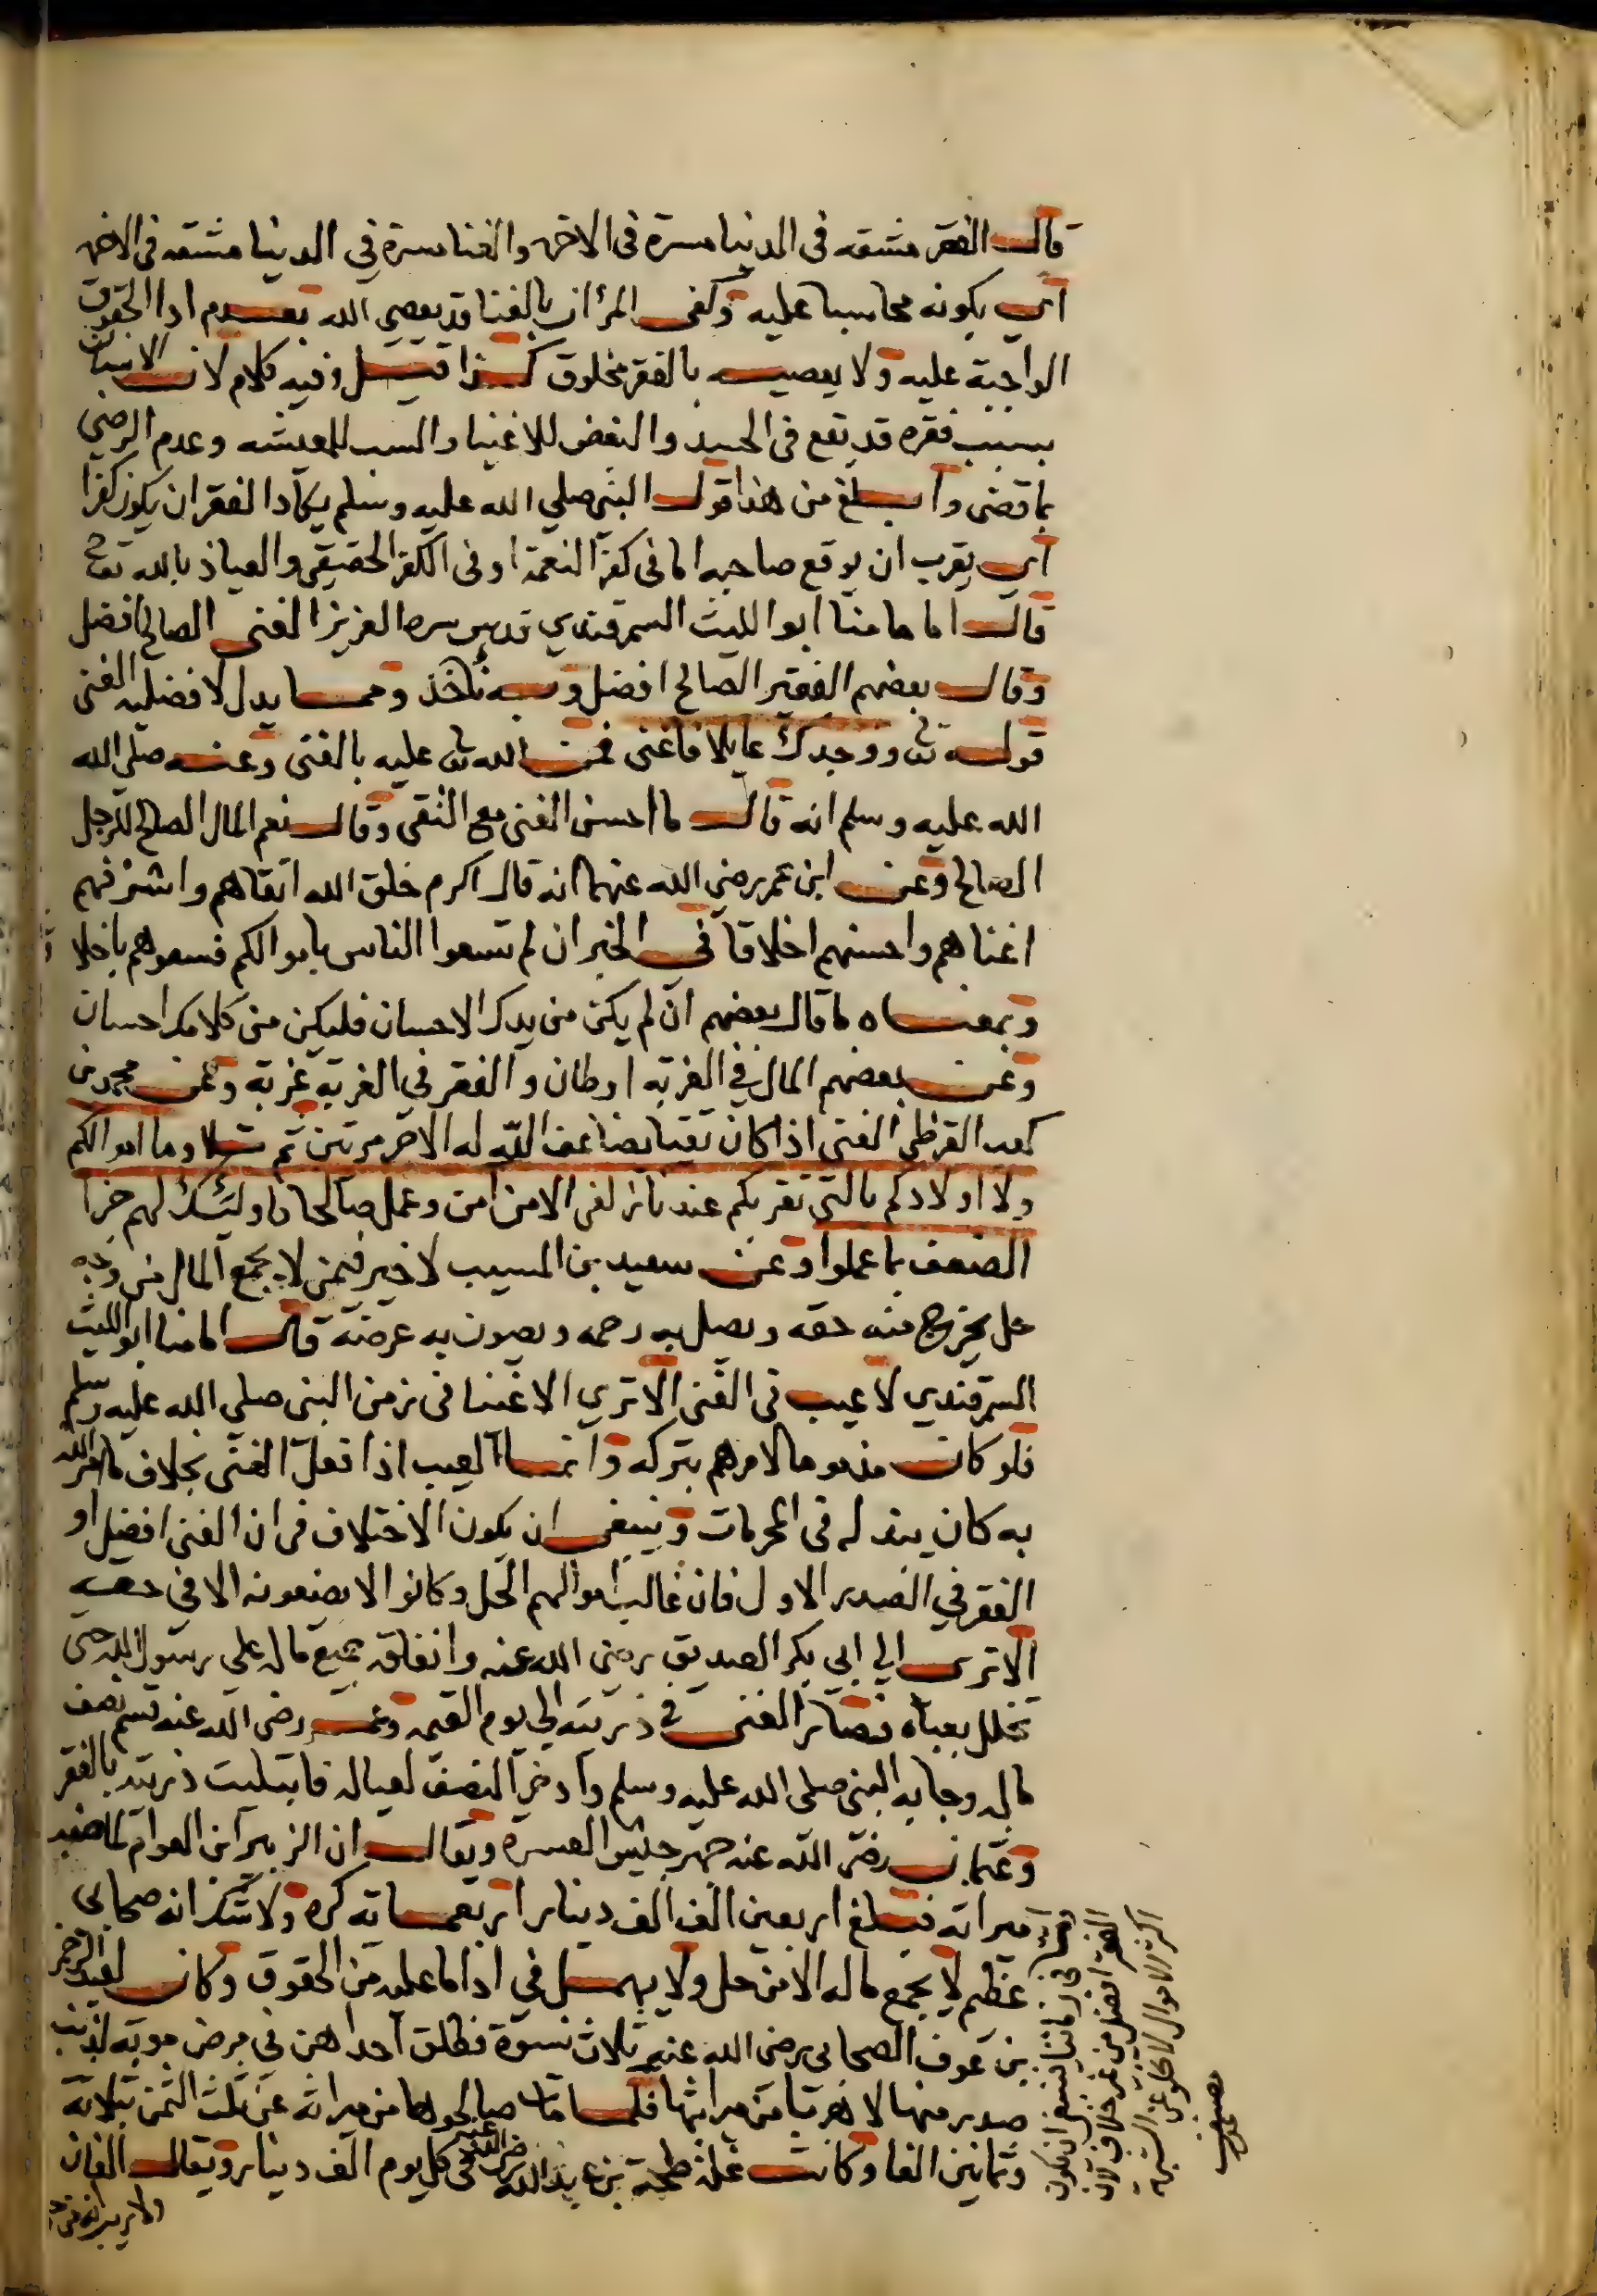 قال الفقر مشقه في الدنيا مسرة في الاخره والغنا مسرة في الدنيا مشقه في الاخره
اي يكونه محاسبا عليه وكفى المرأ ان بالغنا قد يعصي الله بعدم ادا الحقوق
الواجبة عليه ولا يعصيه بالفقر مخلوق كذا قيل وفيه كلام لان الانسان
بسبب فقره قد يقع في الحسد والبغض للاغنيا والسب للمعيشه وعدم الرضي
بما قضى وابلغ من هذا قول النبي صلي الله عليه وسلم يكاد الفقر ان يكون كفرا
اي يقرب ان يوقع صاحبه اما في كفر النعمة او في الكفر الحقيقي والعياذ بالله تعالى
قال امامنا ابو الليث السمرقندي قدس سره العزيز الغني الصالح افضل
وقال بعضهم الفقير الصالح افضل وبه نأخذ ومما يدل لافضلية الغنى
قوله تعالى ووجدك عايلا فاغنى فمن الله تعالى عليه بالغنى وعنه صلى الله
الله عليه وسلم انه قال ما احسن الغنى مع التقى وقال نعم المال الصالح للرجل
الصالح وعن ابن عمر رضي الله عنهما انه قال اكرم خلق الله اتقاهم واشرفهم
اغناهم واحسنهم اخلاقا في الخبر ان لم تسعوا الناس باموالكم فسعوهم باخلا
وبمعناه ما قال بعضهم ان لم يكن من يدك الاحسان فليكن من كلامك احسان
وعن بعضهم المال في الغربه اوطان والفقر في الغربة غربة وعن محمد بن
كعب القرظي الغنى اذا كان تقيا يضاعف الله له الاجر مرتين ثم تلا وما اموالكم
ولا اولادكم بالتي تقربكم عندنا زلفى الا من امن وعمل صالحا فاولئك لهم جزا
الضعف بما عملوا وعن سعيد بن المسيب لا خير فيمن لا يجمع المال من وجه
حل يخرج منه حقه ويصل به رحمه ويصون به عرضه قال امامنا ابو الليث
السمرقندي لا عيب في الغنى الا ترى الاغنيا في زمن النبي صلي الله عليه وسلم
فلو كان مذموما لامرهم بتركه وانما العيب اذا فعل الغنى بخلاف ما امر الله
به كان يبذله في المحرمات وينبغي ان يكون الاختلاف في ان الغنى افضل او
الفقر في الصدر الاول فان غالب اموالهم الحل وكانوا لا يضعونه الا في حقه
الا ترى الي ابي بكر الصديق رضي الله عنه وانفاقه جميع ماله علي رسول الله حتى
تخلل بعباه فصار الغنى في ذريته الي يوم القيمه وعمر رضي الله عنه قسم نصف
ماله وجا به النبي صلى الله عليه وسلم وادخر النصف لعياله فابتليت ذريته بالفقر
وعثمان رضي الله عنه جهز جيش العسرة ويقال ان الزبير ابن العوام لما ضبط
ميراثه فبلغ اربعين الف الف دينار اربعمائة كره ولا شك انه صحابي
عظيم لا يجمع ماله الا من حل ولا يهمل في ادا ما عليه من الحقوق وكان لعبد الرحمن
بن عوف الصحابي رضي الله عنه ثلاث نسوة فطلق احداهن في مرض موته لذنب
صدر منها لا هربا من ميراثها فلما مات صالحوها من ميراثه عن ثلث الثمن بثلاثة
وثمانين الفا وكانت غلة طلحة بن عبيد الله رضي الله عنه في كل يوم الف دينار ويقال الفان
ولا ريب انه من
في زماننا ينبغي ان يكون
الفقر افضل من غير خلاف لان
اكثر الاموال لا تخلو عن الشبهة